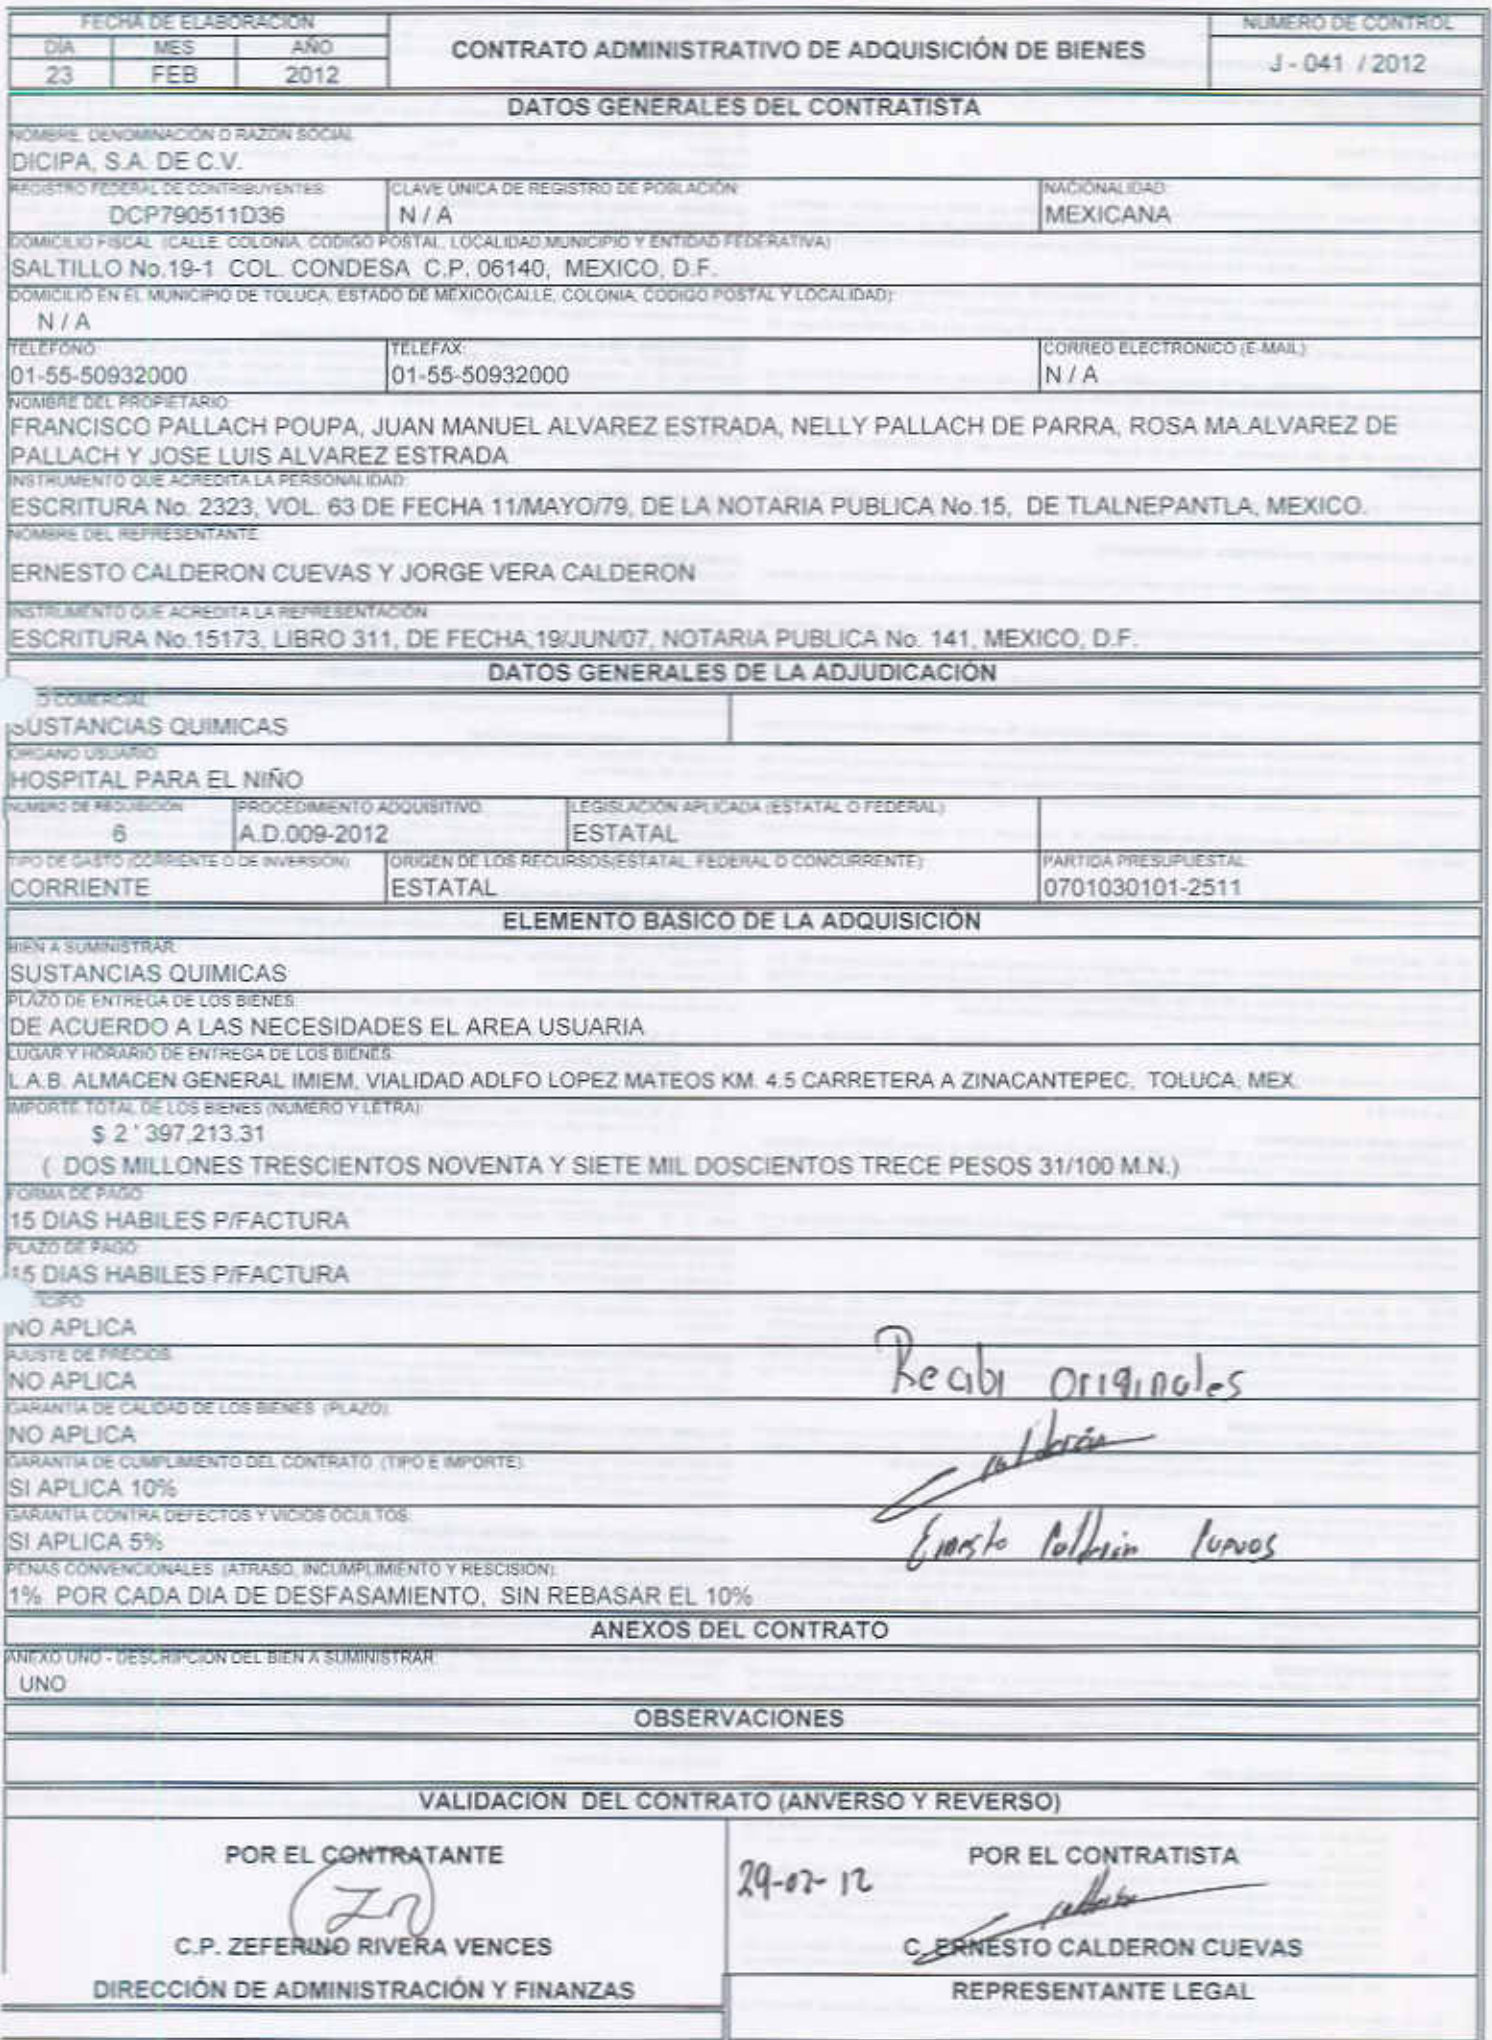 FECHA DE ELABORACIÓN
DÍA MES AÑO
23 FEB 2012
CONTRATO ADMINISTRATIVO DE ADQUISICIÓN DE BIENES
NUMERO DE CONTROL
J - 041 / 2012
DATOS GENERALES DEL CONTRATISTA
NOMBRE, DENOMINACIÓN O RAZÓN SOCIAL
DICIPA, S.A. DE C.V.
REGISTRO FEDERAL DE CONTRIBUYENTES: CLAVE ÚNICA DE REGISTRO DE POBLACIÓN: NACIONALIDAD:
DCP790511D36 N / A MEXICANA
DOMICILIO FISCAL (CALLE, COLONIA, CODIGO POSTAL, LOCALIDAD,MUNICIPIO Y ENTIDAD FEDERATIVA)
SALTILLO No.19-1 COL. CONDESA C.P. 06140, MEXICO, D.F.
DOMICILIO EN EL MUNICIPIO DE TOLUCA, ESTADO DE MÉXICO(CALLE, COLONIA, CODIGO POSTAL Y LOCALIDAD):
N / A
TELÉFONO: TELEFAX: CORREO ELECTRONICO (E-MAIL)
01-55-50932000 01-55-50932000 N / A
NOMBRE DEL PROPIETARIO:
FRANCISCO PALLACH POUPA, JUAN MANUEL ALVAREZ ESTRADA, NELLY PALLACH DE PARRA, ROSA MA.ALVAREZ DE
PALLACH Y JOSE LUIS ALVAREZ ESTRADA
INSTRUMENTO QUE ACREDITA LA PERSONALIDAD:
ESCRITURA No. 2323, VOL. 63 DE FECHA 11/MAYO/79, DE LA NOTARIA PUBLICA No.15, DE TLALNEPANTLA, MEXICO.
NOMBRE DEL REPRESENTANTE:
ERNESTO CALDERON CUEVAS Y JORGE VERA CALDERON
INSTRUMENTO QUE ACREDITA LA REPRESENTACIÓN
ESCRITURA No.15173, LIBRO 311, DE FECHA,19/JUN/07, NOTARIA PUBLICA No. 141, MEXICO, D.F.
DATOS GENERALES DE LA ADJUDICACIÓN
O COMERCIAL
SUSTANCIAS QUIMICAS
ORGANO USUARIO:
HOSPITAL PARA EL NIÑO
NUMERO DE REQUISICIÓN PROCEDIMIENTO ADQUISITIVO: LEGISLACIÓN APLICADA (ESTATAL O FEDERAL)
6 A.D.009-2012 ESTATAL
TIPO DE GASTO (CORRIENTE O DE INVERSIÓN) ORIGEN DE LOS RECURSOS(ESTATAL, FEDERAL O CONCURRENTE): PARTIDA PRESUPUESTAL:
CORRIENTE ESTATAL 0701030101-2511
ELEMENTO BÁSICO DE LA ADQUISICIÓN
BIEN A SUMINISTRAR:
SUSTANCIAS QUIMICAS
PLAZO DE ENTREGA DE LOS BIENES:
DE ACUERDO A LAS NECESIDADES EL AREA USUARIA
LUGAR Y HORARIO DE ENTREGA DE LOS BIENES:
L.A.B. ALMACEN GENERAL IMIEM, VIALIDAD ADLFO LOPEZ MATEOS KM. 4.5 CARRETERA A ZINACANTEPEC, TOLUCA, MEX.
IMPORTE TOTAL DE LOS BIENES (NUMERO Y LETRA):
$ 2 ' 397,213.31
( DOS MILLONES TRESCIENTOS NOVENTA Y SIETE MIL DOSCIENTOS TRECE PESOS 31/100 M.N.)
FORMA DE PAGO:
15 DIAS HABILES P/FACTURA
PLAZO DE PAGO:
15 DIAS HABILES P/FACTURA
NO APLICA
AJUSTE DE PRECIOS:
NO APLICA
Recibi originales
GARANTÍA DE CALIDAD DE LOS BIENES (PLAZO):
NO APLICA
Calderón
GARANTÍA DE CUMPLIMIENTO DEL CONTRATO (TIPO E IMPORTE):
SI APLICA 10%
GARANTÍA CONTRA DEFECTOS Y VICIOS OCULTOS:
SI APLICA 5%
Ernesto Calderón Cuevas
PENAS CONVENCIONALES (ATRASO, INCUMPLIMIENTO Y RESCISIÓN):
1% POR CADA DIA DE DESFASAMIENTO, SIN REBASAR EL 10%
ANEXOS DEL CONTRATO
ANEXO UNO - DESCRIPCIÓN DEL BIEN A SUMINISTRAR:
UNO
OBSERVACIONES
VALIDACIÓN DEL CONTRATO (ANVERSO Y REVERSO)
POR EL CONTRATANTE
C.P. ZEFERINO RIVERA VENCES
DIRECCIÓN DE ADMINISTRACIÓN Y FINANZAS
POR EL CONTRATISTA
29-02-12
C. ERNESTO CALDERON CUEVAS
REPRESENTANTE LEGAL